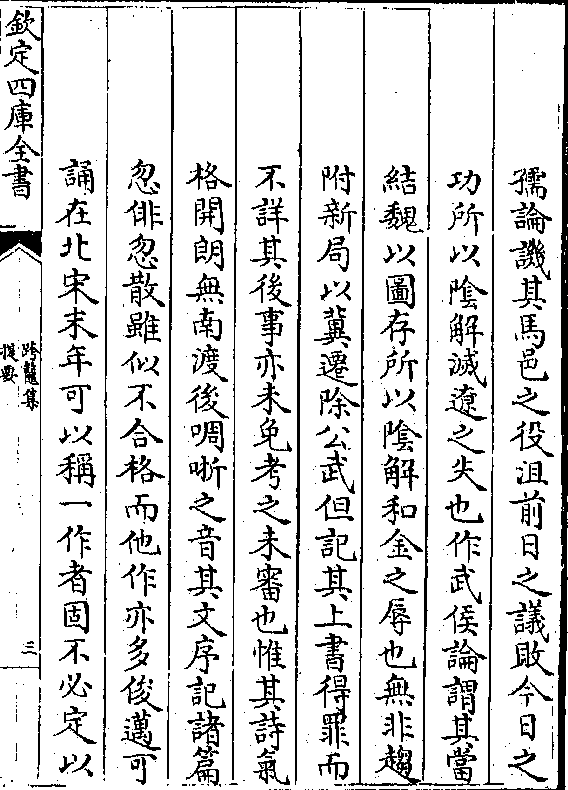 孺論譏其馬邑之役沮前日之議敗今日之
功所以陰解滅遼之失也作武侯論謂其當
結魏以圖存所以陰解和金之辱也無非趨
附新局以冀遷除公武但記其上書得罪而
不詳其後事亦未免考之未審也惟其詩氣
格開朗無南渡後啁哳之音其文序記諸篇
忽俳忽散雖似不合格而他作亦多俊邁可
誦在北宋末年可以稱一作者固不必定以
欽定四庫全書
跨鼇集
提要
三